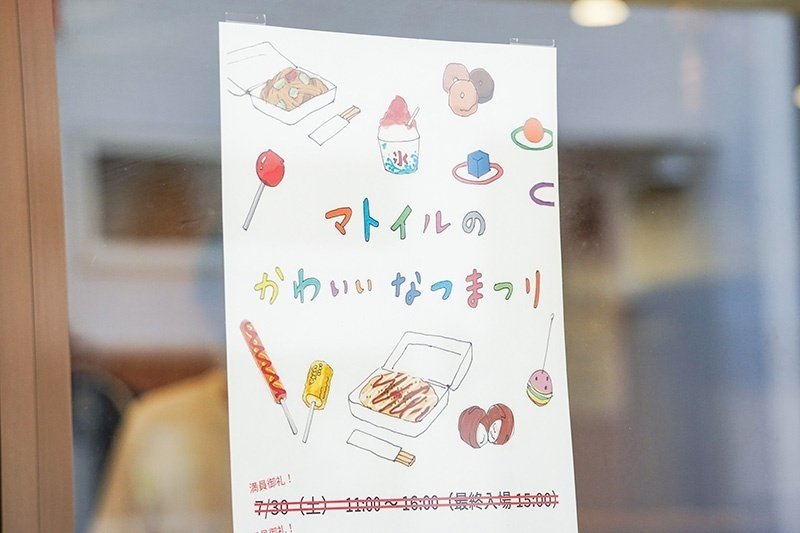 氷
マトイルの
かわいい なつまつり
満員御礼！
7/30（土） 11:00～16:00（最終入場 15:00）
満員御礼！